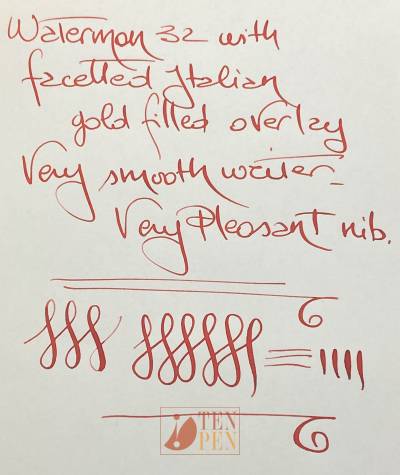 Waterman 32 with
facetted Italian
gold filled overlay
Very smooth writer_
Very Pleasant nib.
TEN
PEN